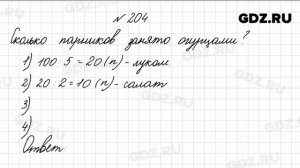 GDZ.RU
№ 204
Сколько парников занято огурцами?
1) 100 : 5 = 20 (п) - луком
2) 20 : 2 = 10 (п) - салат
3)
4)
Ответ
GDZ.RU